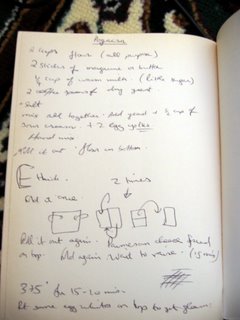 2 cups flour (all purpose)
2 sticks of margarine or butter
½ cup of warm milk. (little sugar)
2 coffee spoons of dry yeast
salt
mix all together. Add yeast + ½ cup of
sour cream. + 2 egg yolks
Hand mix
Roll it out. flour on bottom.
thick.
2 times
Roll it out again. Parmesan cheese spread
on top. fold again. Wait to raise. (15 min)
375° for 15-20 min.
Put some egg whites on top to get gleam.